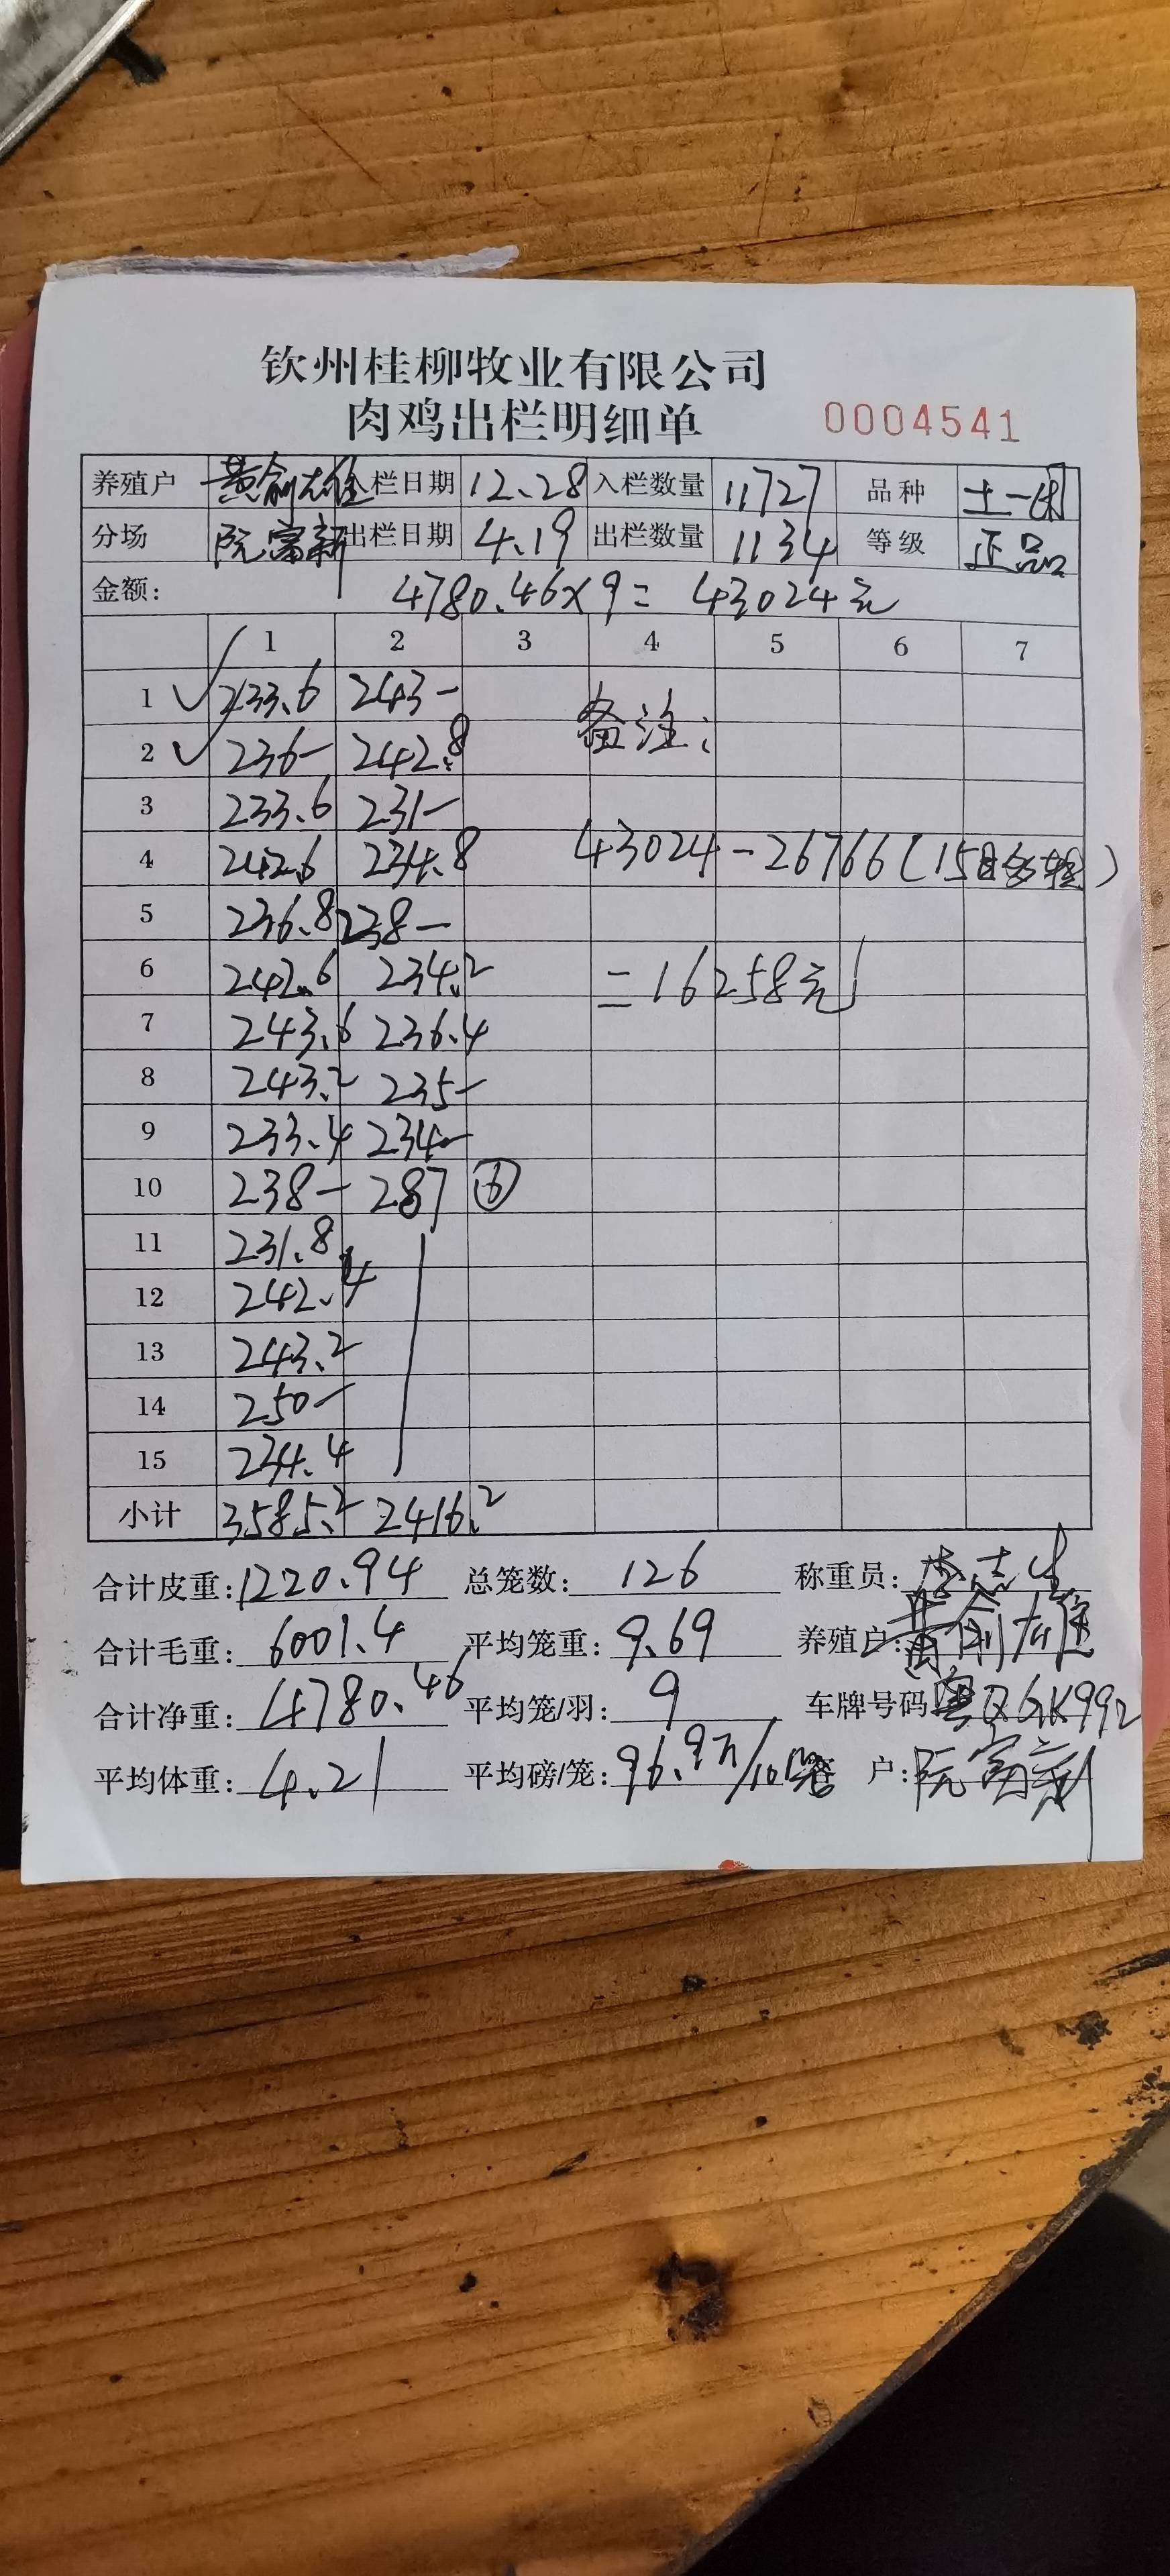 钦州桂柳牧业有限公司
肉鸡出栏明细单 0004541
养殖户 黄俞雄 入栏日期 12.28 入栏数量 11727 品种 土一
分场 阮富新 出栏日期 4.19 出栏数量 1134 等级 正品
金额: 4780.46×9= 43024元
1 2 3 4 5 6 7
1 233.6 243- 备注:
2 236- 242.8
3 233.6 231-
4 242.6 234.8 43024-26766(15
5 236.8 238-
6 242.6 234.2 =16258元
7 243.6 236.4
8 243.2 235-
9 233.4 234-
10 238- 287 ⑥
11 231.8
12 242.4
13 243.2
14 250-
15 234.4
小计 3585.2 2416.2
合计皮重: 1220.94 总笼数: 126 称重员: 李志生
合计毛重: 6001.4 平均笼重: 9.69 养殖户: 黄俞雄
合计净重: 4780.46 平均笼/羽: 9 车牌号码 粤QGK992
平均体重: 4.21 平均磅/笼: 96.9斤/10 客户: 阮富新